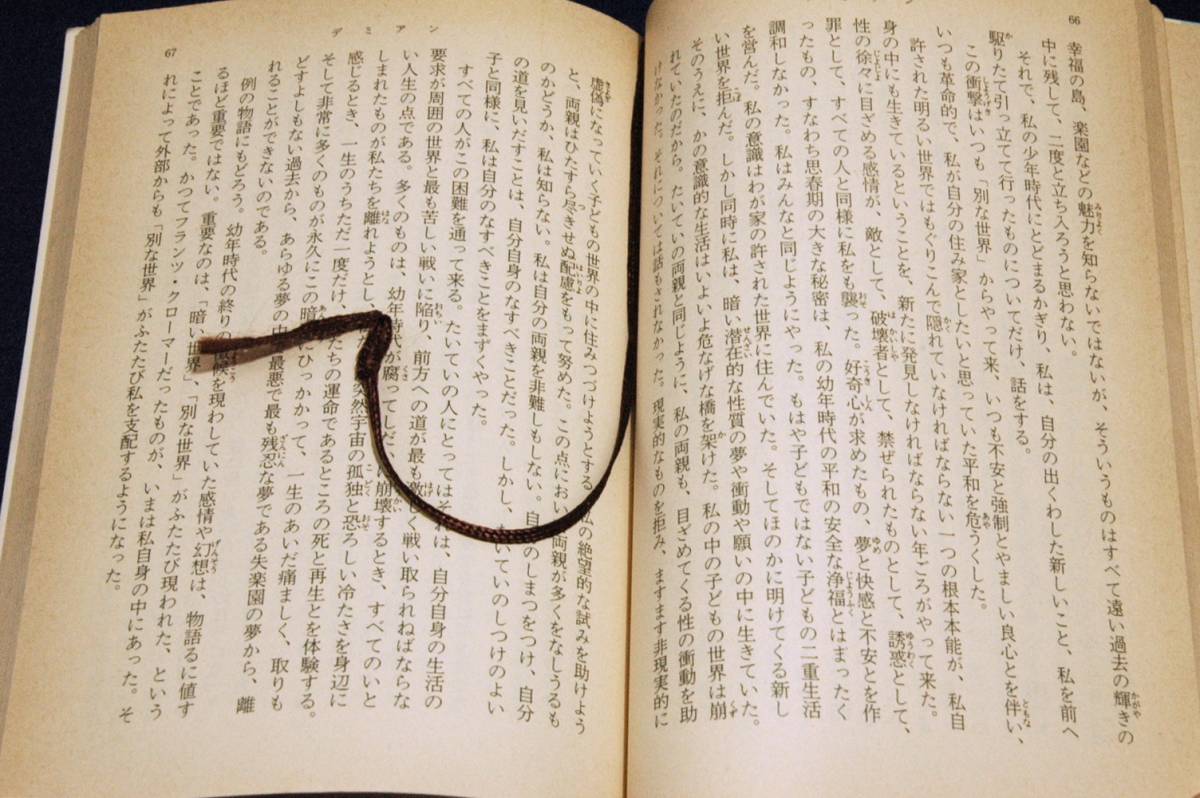 66
幸福の島、楽園などの魅力を知らないではないが、そういうものはすべて遠い過去の輝きの
中に残して、二度と立ち入ろうと思わない。
それで、私の少年時代にとどまるかぎり、私は、自分の出くわした新しいこと、私を前へ
駆りたて引っ立てて行ったものについてだけ、話をする。
この衝撃はいつも「別な世界」からやって来、いつも不安と強制とやましい良心とを伴い、
いつも革命的で、私が自分の住み家としたいと思っていた平和を危うくした。
許された明るい世界ではもぐりこんで隠れていなければならない一つの根本本能が、私自
身の中にも生きているということを、新たに発見しなければならない年ごろがやって来た。
性の徐々に目ざめる感情が、敵として、破壊者として、禁ぜられたものとして、誘惑として、
罪として、すべての人と同様に私をも襲った。好奇心が求めたもの、夢と快感と不安とを作
ったもの、すなわち思春期の大きな秘密は、私の幼年時代の平和の安全な浄福とはまったく
調和しなかった。私はみんなと同じようにやった。もはや子どもではない子どもの二重生活
を営んだ。私の意識はわが家の許された世界に住んでいた。そしてほのかに明けてくる新し
い世界を拒んだ。しかし同時に私は、暗い潜在的な性質の夢や衝動や願いの中に生きていた。
そのうえに、かの意識的な生活はいよいよ危なげな橋を架けた。私の中の子どもの世界は崩
れていたのだから。たいていの両親と同じように、私の両親も、目ざめてくる性の衝動を助
けなかった。それについては話もされなかった。現実的なものを拒み、ますます非現実的に
デミアン
67
虚偽になっていく子どもの世界の中に住みつづけようとする私の絶望的な試みを助けよう
と、両親はひたすら尽きせぬ配慮をもって努めた。この点において両親が多くをなしうるも
のかどうか、私は知らない。私は自分の両親を非難しもしない。自分のしまつをつけ、自分
の道を見いだすことは、自分自身のなすべきことだった。しかし、たいていのしつけのよい
子と同様に、私は自分のなすべきことをまずくやった。
すべての人がこの困難を通って来る。たいていの人にとってはそれは、自分自身の生活の
要求が周囲の世界と最も苦しい戦いに陥り、前方への道が最も激しく戦い取られねばならな
い人生の点である。多くのものは、幼年時代が腐ってしだいに崩壊するとき、すべてのいと
しまれたものが私たちを離れようとし、突然宇宙の孤独と恐ろしい冷たさを身辺に
感じるとき、一生のうちただ一度だけ、たちの運命であるところの死と再生とを体験する。
そして非常に多くのものが永久にこの暗ひっかかって、一生のあいだ痛ましく、取りも
どすよしもない過去から、あらゆる夢の中最悪で最も残忍な夢である失楽園の夢から、離
れることができないのである。
例の物語にもどろう。幼年時代の終りの候を現わしていた感情や幻想は、物語るに値す
るほど重要ではない。重要なのは、「暗い世界」、「別な世界」がふたたび現われた、という
ことであった。かつてフランツ・クローマーだったものが、いまは私自身の中にあった。そ
れによって外部からも「別な世界」がふたたび私を支配するようになった。